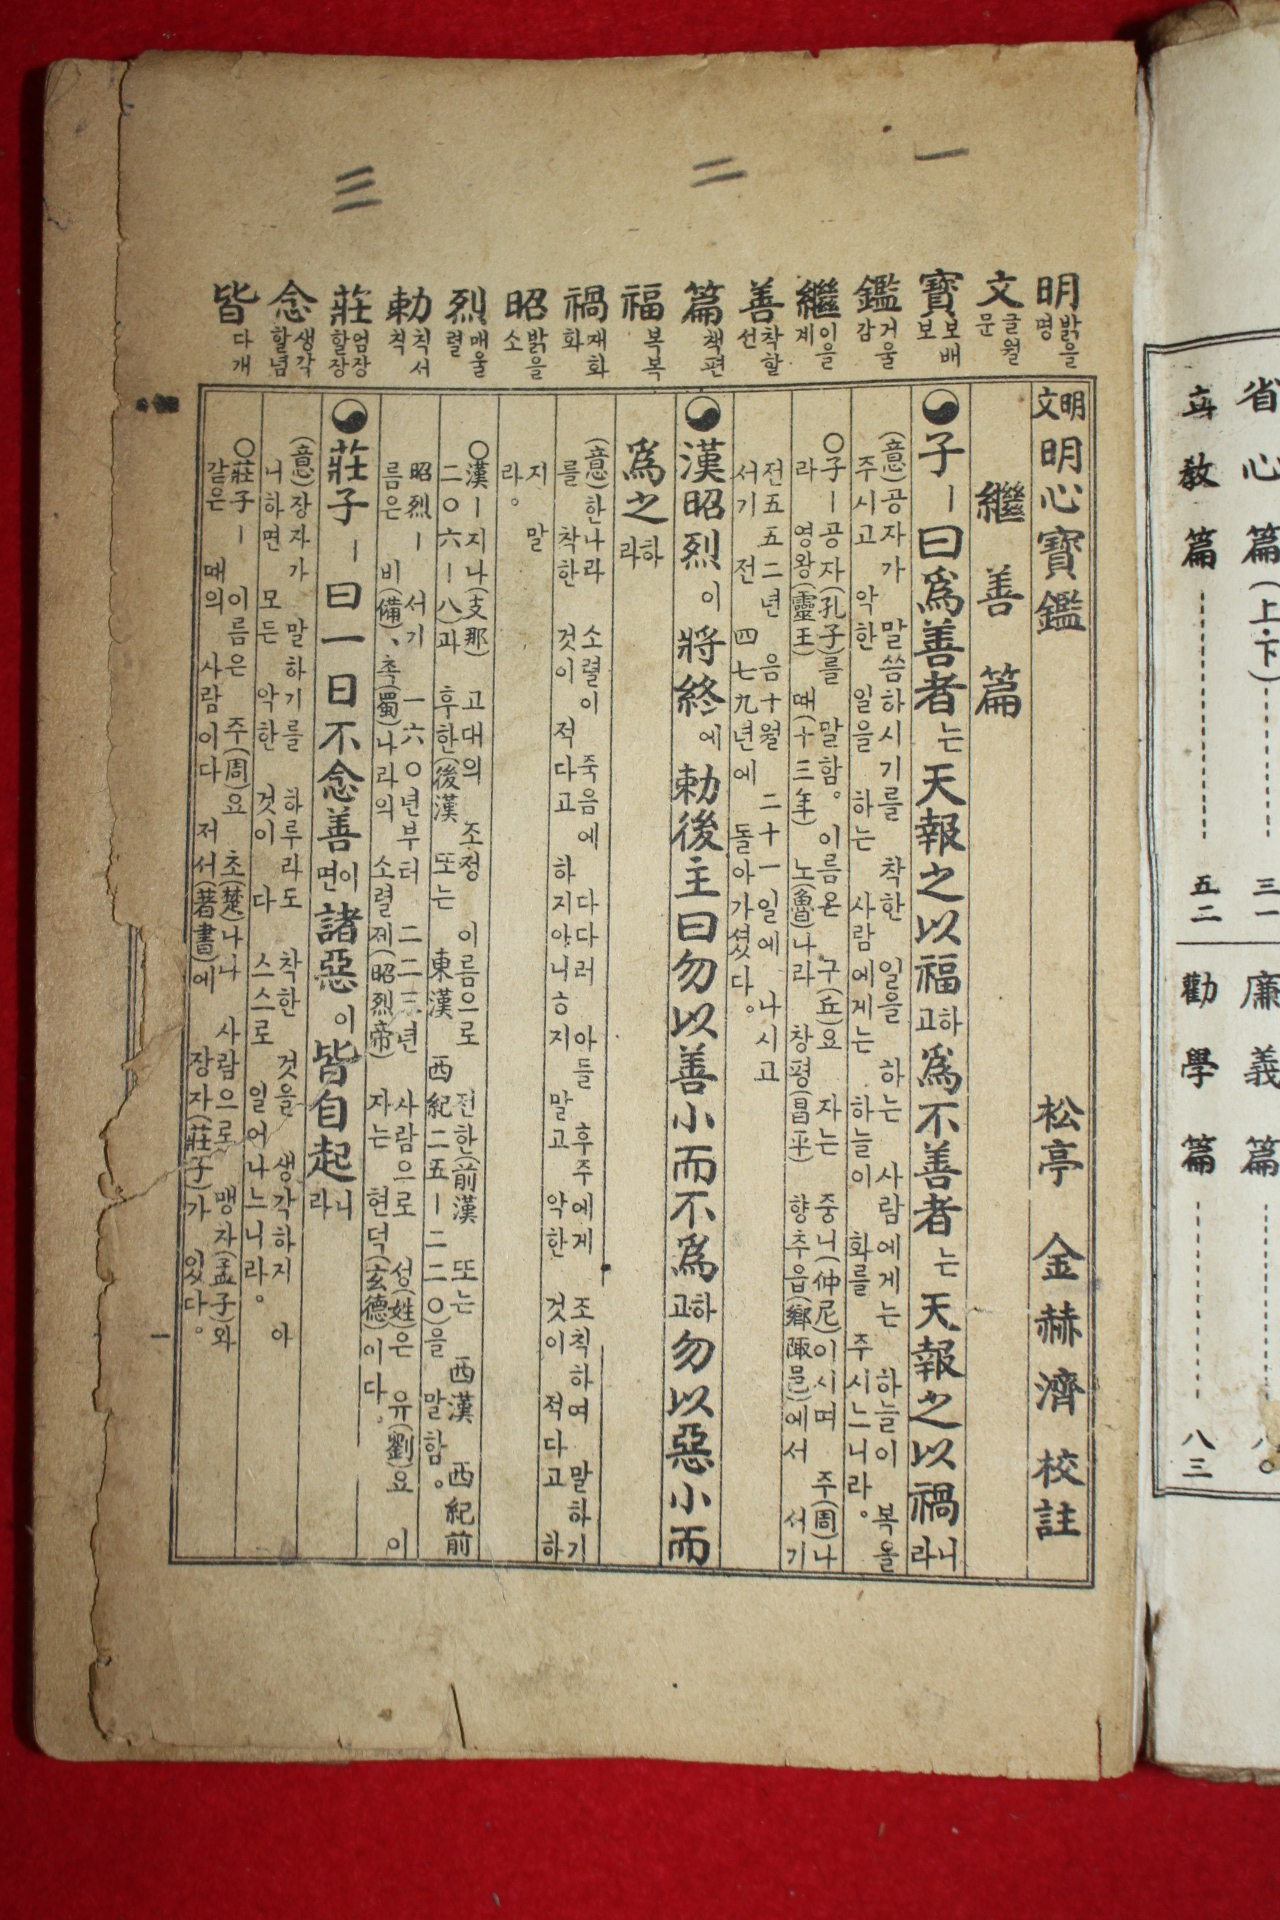 省心篇(上下) 三一
廉義篇 八〇
立敎篇 五二
勸學篇 八三
一
二
三
明 밝을 명
文 글월 문
寶 보배 보
鑑 거울 감
繼 이을 계
善 착할 선
篇 책 편
福 복 복
禍 재화 화
昭 밝을 소
烈 매울 렬
勅 칙서 칙
莊 엄장할 장
念 생각할 념
皆 다 개
明文 明心寶鑑 松亭 金赫濟 校註
繼善篇
子ㅣ曰爲善者는 天報之以福하고 爲不善者는 天報之以禍니라
(意)공자가 말씀하시기를 착한 일을 하는 사람에게는 하늘이 복을
주시고 악한 일을 하는 사람에게는 하늘이 화를 주시느니라。
○子ㅣ공자(孔子)를 말함。 이름은 구(丘)요 자는 중니(仲尼)이시며 주(周)나
라 영왕(靈王) 때(十三年) 노(魯)나라 창평(昌平) 향추읍(鄕陬邑)에서 서기
전五五二년 음十월 二十一일에 나시고
서기 전 四七九년에 돌아가셨다。
漢昭烈이 將終에 勅後主曰勿以善小而不爲하고 勿以惡小而
爲之하라
(意)한나라 소렬이 죽음에 다다러 아들 후주에게 조칙하여 말하기
를 착한 것이 적다고 하지아니하지 말고 악한 것이 적다고 하
지 말
라。
○漢ㅣ지나(支那) 고대의 조정 이름으로 전한(前漢 또는 西漢 西紀前
二〇六ㅣ八)과 후한(後漢 또는 東漢 西紀二五ㅣ二二〇)을 말함。
昭烈ㅣ 서기 一六〇년부터 二二三년 사람으로 성(姓)은 유(劉)요 이
름은 비(備)、촉(蜀)나라의 소렬제(昭烈帝) 자는 현덕(玄德)이다。
莊子ㅣ曰一日不念善이면 諸惡이 皆自起니라
(意)장자가 말하기를 하루라도 착한 것을 생각하지 아
니하면 모든 악한 것이 다 스스로 일어나느니라。
○莊子ㅣ 이름은 주(周)요 초(楚)나라 사람으로 맹자(孟子)와
같은 때의 사람이다 저서(著書)에 장자(莊子)가 있다。
一